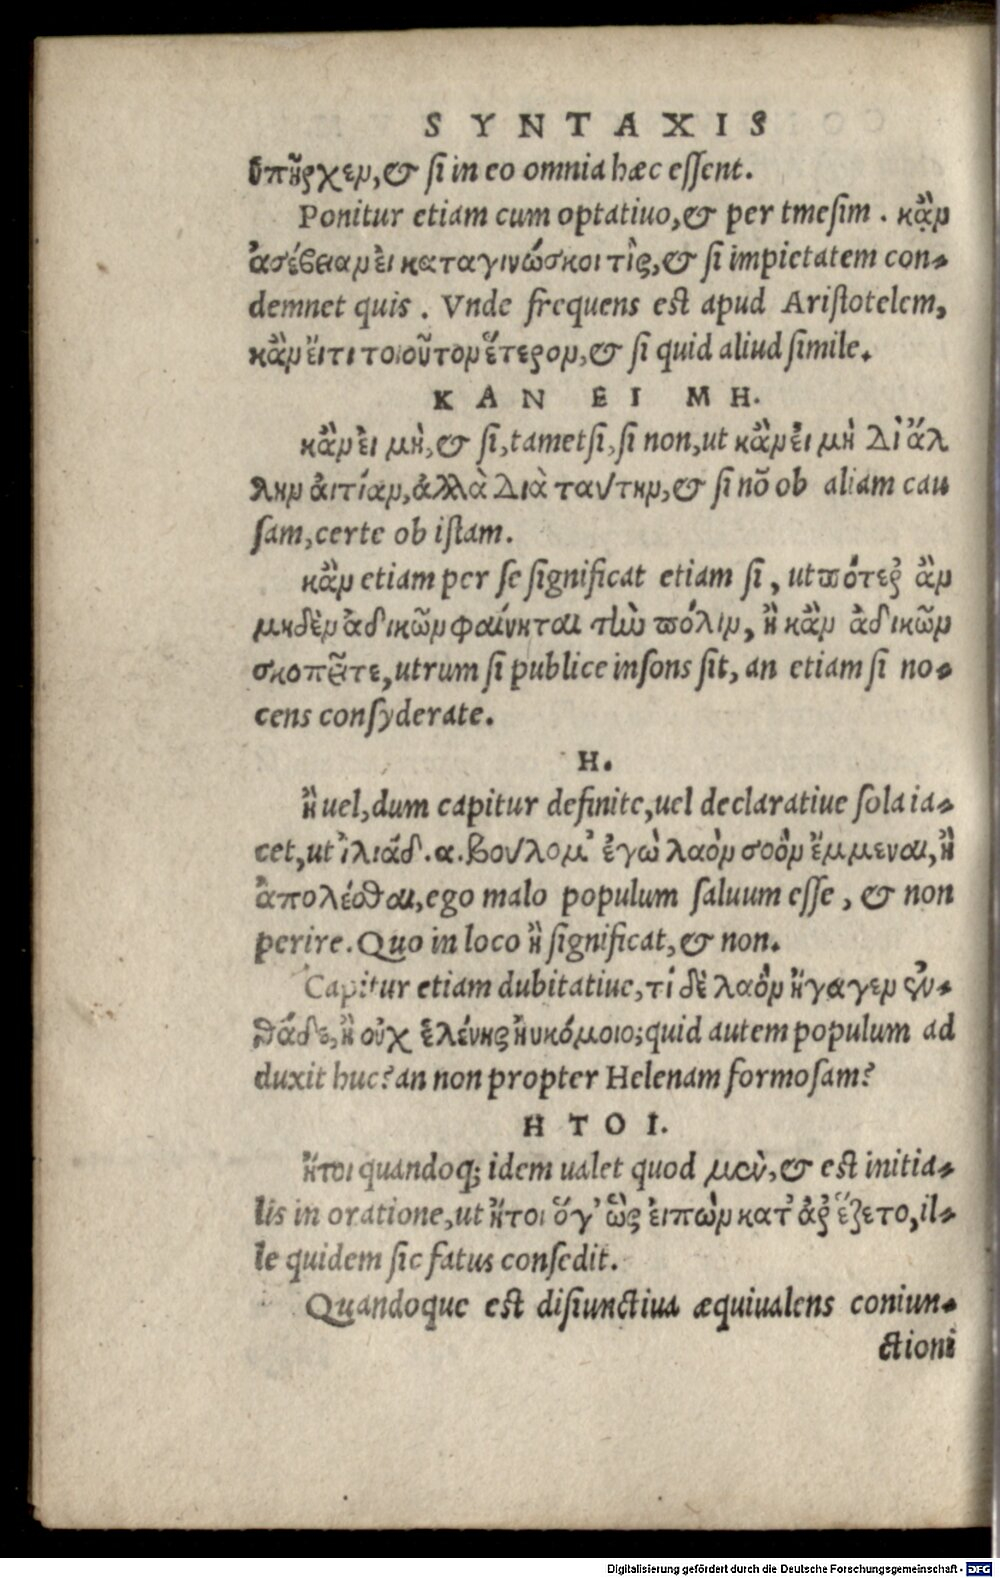 SYNTAXIS
ὑπῆρχεν, & si in eo omnia hæc essent.
Ponitur etiam cum optatiuo, & per tmesim . κἂν
ἀσέβειαν ἐι καταγινώσκοι τὶς, & si impietatem con-
demnet quis . Vnde frequens est apud Aristotelem,
κἂν ἔιτι τοιοῦτον ἕτερον, & si quid aliud simile.
KAN EI MH.
κἂν ἐι μὴ, & si, tametsi, si non, ut κἂν ἐι μὴ Διἄλ
λην ἀιτίαν, ἀλλὰ Διὰ ταύτην, & si nõ ob aliam cau
sam, certe ob istam.
κἂν etiam per se significat etiam si, ut πότερ ἂν
μηδὲν ἀδικῶν φαίνηται τὼ πόλιν, ἢ κἂν ἀδικῶν
σκοπεῖτε, utrum si publice insons sit, an etiam si no-
cens consyderate.
H.
ἢ uel, dum capitur definite, uel declaratiue sola ia-
cet, ut ἰλιάδ. α. βούλομ᾽ ἐγὼ λαὸν σοὸν ἔμμεναι, ἢ
ἀπολέσθαι, ego malo populum saluum esse, & non
perire. Quo in loco ἢ significat, & non.
Capitur etiam dubitatiue, τί δὲ λαὸν ἤγαγεν ἐν-
θάδε, ἢ οὐχ ἑλένης ἠυκόμοιο; quid autem populum ad
duxit huc? an non propter Helenam formosam?
HTOI.
ἤτοι quandoq; idem ualet quod μὲν, & est initia-
lis in oratione, ut ἤτοι ὅγ᾽ ὣς ἐιπὼν κατ᾽ ἀρ ἕζετο, il-
le quidem sic fatus consedit.
Quandoque est disiunctiua æquiualens coniun-
ctioni
Digitalisierung gefördert durch die Deutsche Forschungsgemeinschaft - DFG